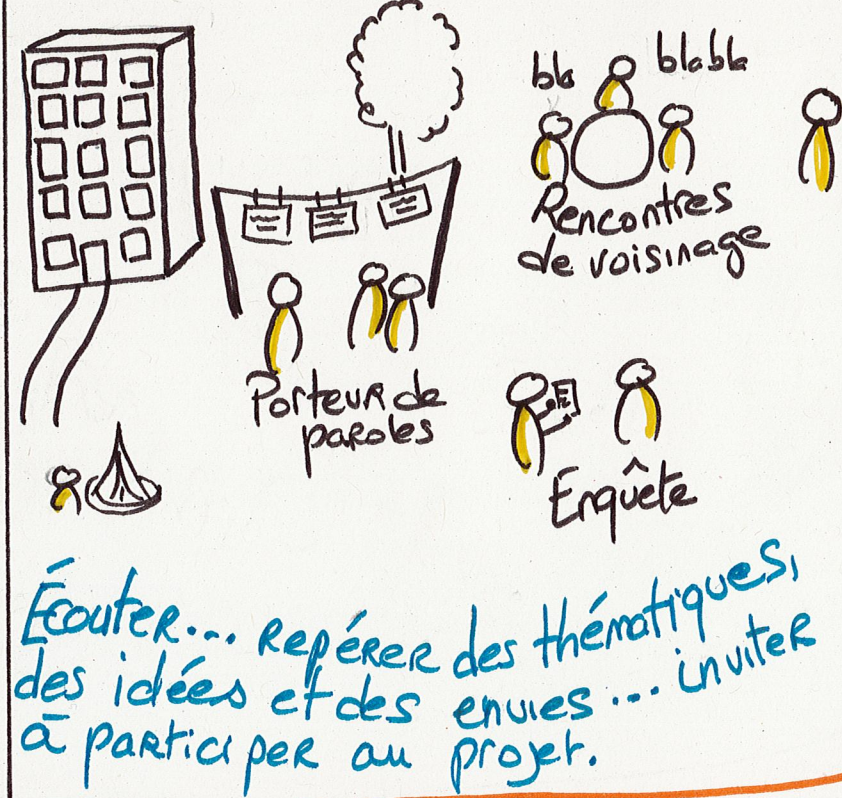 bla
blabla
Rencontres
de voisinage
Porteur de
paroles
Enquête
Écouter... repérer des thématiques,
des idées et des envies... inviter
à participer au projet.